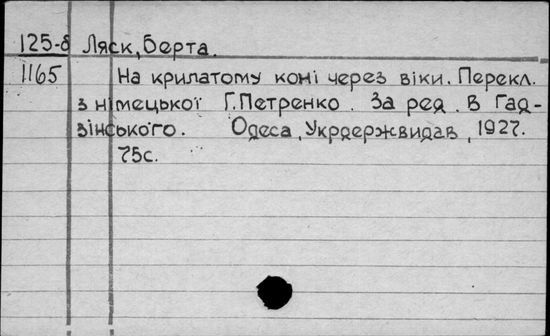 125-б Ляск, Берта.
1165 На крилатому коні через віки. Перекл.
з німецької Г. Петренко. За ред. В Гад-
зінського. Одеса, Укрдержвидав, 1927.
75с.